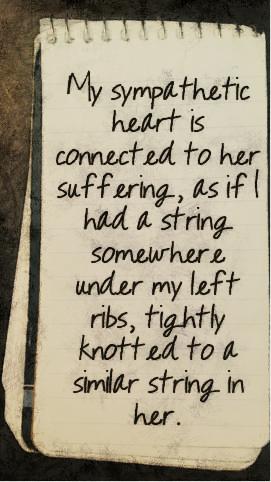 My sympathetic
heart is
connected to her
suffering, as if I
had a string
somewhere
under my left
ribs, tightly
knotted to a
similar string in
her.